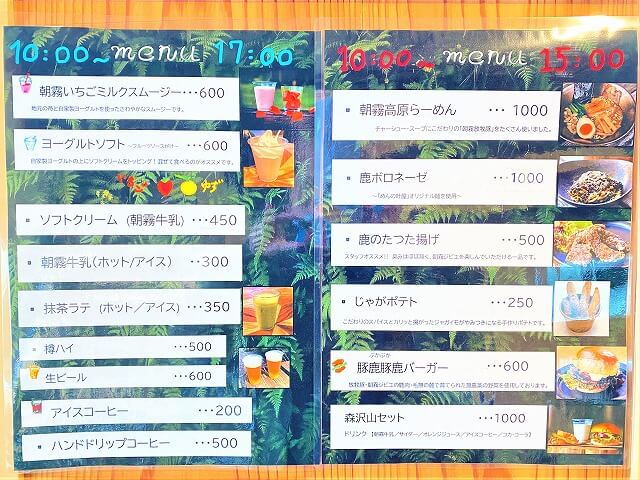 10:00～menu 17:00
朝霧いちごミルクスムージー･･･600
地元の苺と自家製ヨーグルトを使ったさわやかなスムージーです。
ヨーグルトソフト ～フルーツソースがけ～ ･･･600
自家製ヨーグルトの上にソフトクリームをトッピング！混ぜて食べるのがオススメです。
ゆず
ソフトクリーム (朝霧牛乳) ･･･450
朝霧牛乳(ホット/アイス) ･･300
抹茶ラテ (ホット／アイス) ･･･350
樽ハイ ･･･500
生ビール ･･･600
アイスコーヒー ･･･200
ハンドドリップコーヒー ･･･500
10:00～menu 15:00
朝霧高原らーめん ･･･ 1000
チャーシュー・スープにこだわりの「朝霧放牧豚」をたくさん使いました。
鹿ボロネーゼ ･･･1000
～「めんの叶屋」オリジナル麺を使用～
鹿のたつた揚げ ･･･500
じゃがポテト ･･･250
こだわりのスパイスとカリッと揚がったジャガイモがやみつきになる手作りポテトです。
ぶかぶか
豚鹿豚鹿バーガー ･･･600
森沢山セット ･･･1000
ドリンク 【朝霧牛乳／サイダー／オレンジジュース／アイスコーヒー／コカ・コーラ】